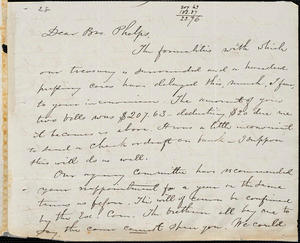 28
207.63
182.87
23 76
Dear Bro. Phelps,
The formalities with which
our treasury is surrounded and a hundred
pressing cares have delayed this, much, I fear,
to your inconvenience. The amount of your
two bills was $207.63 - deducting $25 due me
it becomes as above. It was a little inconvenient
to send a check or draft on bank - I suppose
this will do as well.
Our agency Committee have recommended
your reappointment for a year on the same
terms as before. This will of course be confirmed
by the Ex. Com. The brethren all beg me to
say the cause cannot spare you. We could